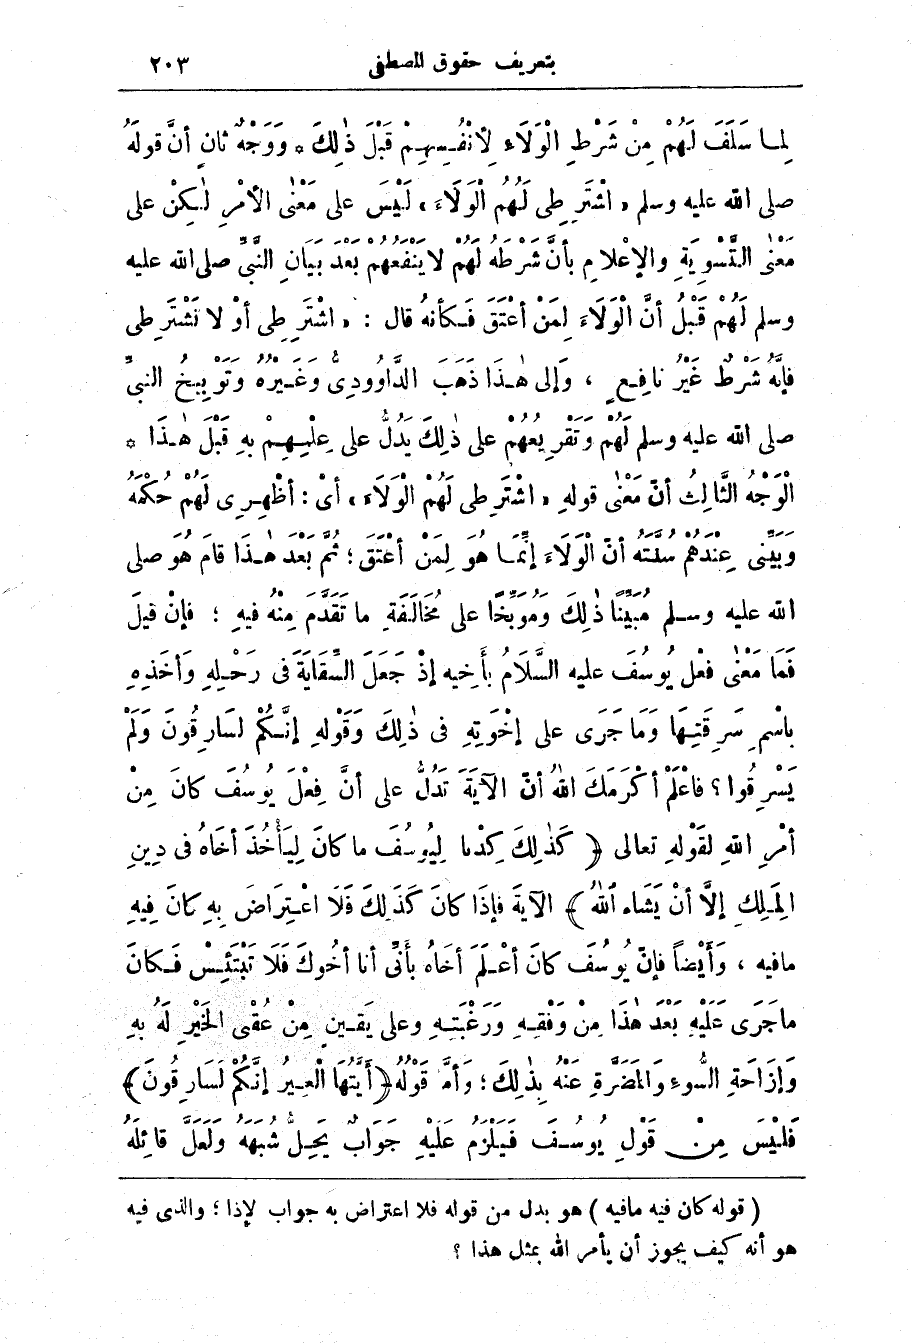 بتعريف حقوق المصطفى ٢٠٣
لِمَا سَلَفَ لَهُمْ مِنْ شَرْطِ الْوَلَاءِ لِأَنْفُسِهِمْ قَبْلَ ذٰلِكَ * وَوَجْهٌ ثانٍ أنَّ قولَهُ
صلى الله عليه وسلم «اشْتَرِطِى لَهُمُ الْوَلَاءَ» لَيْسَ على مَعْنَى الأَمْرِ لٰكِنْ على
مَعْنَى التَّسْوِيَةِ والإِعْلَامِ بأنَّ شَرْطَهُ لَهُمْ لا يَنْفَعُهُمْ بَعْدَ بَيَانِ النَّبِىِّ صلى الله عليه
وسلم لَهُمْ قَبْلُ أنَّ الْوَلَاءَ لِمَنْ أعْتَقَ فَكأنهُ قال : «اشْتَرِطِى أوْ لا تَشْتَرِطِى
فإنَّهُ شَرْطٌ غَيْرُ نافِعٍ ، وَإلى هٰذَا ذَهَبَ الدَّاوُودِىُّ وَغَيْرُهُ وَتَوْبِيخُ النبىِّ
صلى الله عليه وسلم لَهُمْ وَتَقْرِيعُهُمْ على ذٰلِكَ يَدُلُّ على عِلْمِهِمْ بهِ قَبْلَ هٰذَا *
الْوَجْهُ الثَّالِثُ أنّ مَعْنَى قوله «اشْتَرِطِى لَهُمْ الْوَلَاءَ» أىْ : أظْهِرِى لَهُمْ حُكْمَهُ
وَبَيِّنِى عِنْدَهُمْ سُنَّتَهُ أنّ الْوَلَاءَ إنَّمَا هُوَ لِمَنْ أعْتَقَ ؛ ثُمَّ بَعْدَ هٰذَا قامَ هُوَ صلى
الله عليه وسلم مُبَيِّنًا ذٰلِكَ وَمُوَبِّخًا على مُخَالَفَةِ ما تَقَدَّمَ مِنْهُ فيهِ ؛ فإنْ قيلَ
فَمَا مَعْنَى فِعْلِ يُوسُفَ عليه السَّلَامُ بأَخِيهِ إذْ جَعَلَ السِّقَايَةَ فى رَحْلِهِ وَأخَذِهِ
باسْمِ سَرِقَتِهَا وَمَا جَرَى على إخْوَتِهِ فى ذٰلِكَ وَقَوْلِهِ إنَّكُمْ لَسَارِقُونَ وَلَمْ
يَسْرِقُوا ؟ فاعْلَمْ أكْرَمَكَ اللهُ أنّ الآيَةَ تَدُلُّ على أنَّ فِعْلَ يُوسُفَ كانَ مِنْ
أمْرِ اللهِ لقَوْلِهِ تعالى ﴿ كَذٰلِكَ كِدْنَا لِيُوسُفَ ما كانَ لِيَأْخُذَ أخَاهُ فى دِينِ
المَلِكِ إلَّا أنْ يَشَاءَ اللهُ ﴾ الآيَةَ فإذَا كانَ كَذَلِكَ فَلَا اعْتِرَاضَ بِهِ كانَ فِيهِ
مافيه ، وَأَيْضاً فإنّ يُوسُفَ كانَ أعْلَمَ أخَاهُ بأَنِّى أنا أخُوكَ فَلَا تَبْتَئِسْ فَكانَ
ماجَرَى عَلَيْهِ بَعْدَ هٰذَا مِنْ وَفْقِهِ وَرَغْبَتِهِ وعلى يَقينٍ مِنْ عُقْبَى الخَيْرِ لَهُ بهِ
وَإزَاحَةِ السُّوءِ وَالمَضَرَّةِ عَنْهُ بِذٰلِكَ ؛ وَأمَّا قَوْلُهُ ﴿ أيَّتُهَا الْعِيرُ إنَّكُمْ لَسَارِقُونَ ﴾
فَلَيْسَ مِنْ قَوْلِ يُوسُفَ فَيَلْزَمُ عَلَيْهِ جَوَابٌ يَحِلُّ شُبَهَهُ وَلَعَلَّ قائِلَهُ
( قوله كان فيه مافيه ) هو بدل من قوله فلا اعتراض به جواب لإذا ؛ والذى فيه
هو أنه كيف يجوز أن يأمر الله بمثل هذا ؟